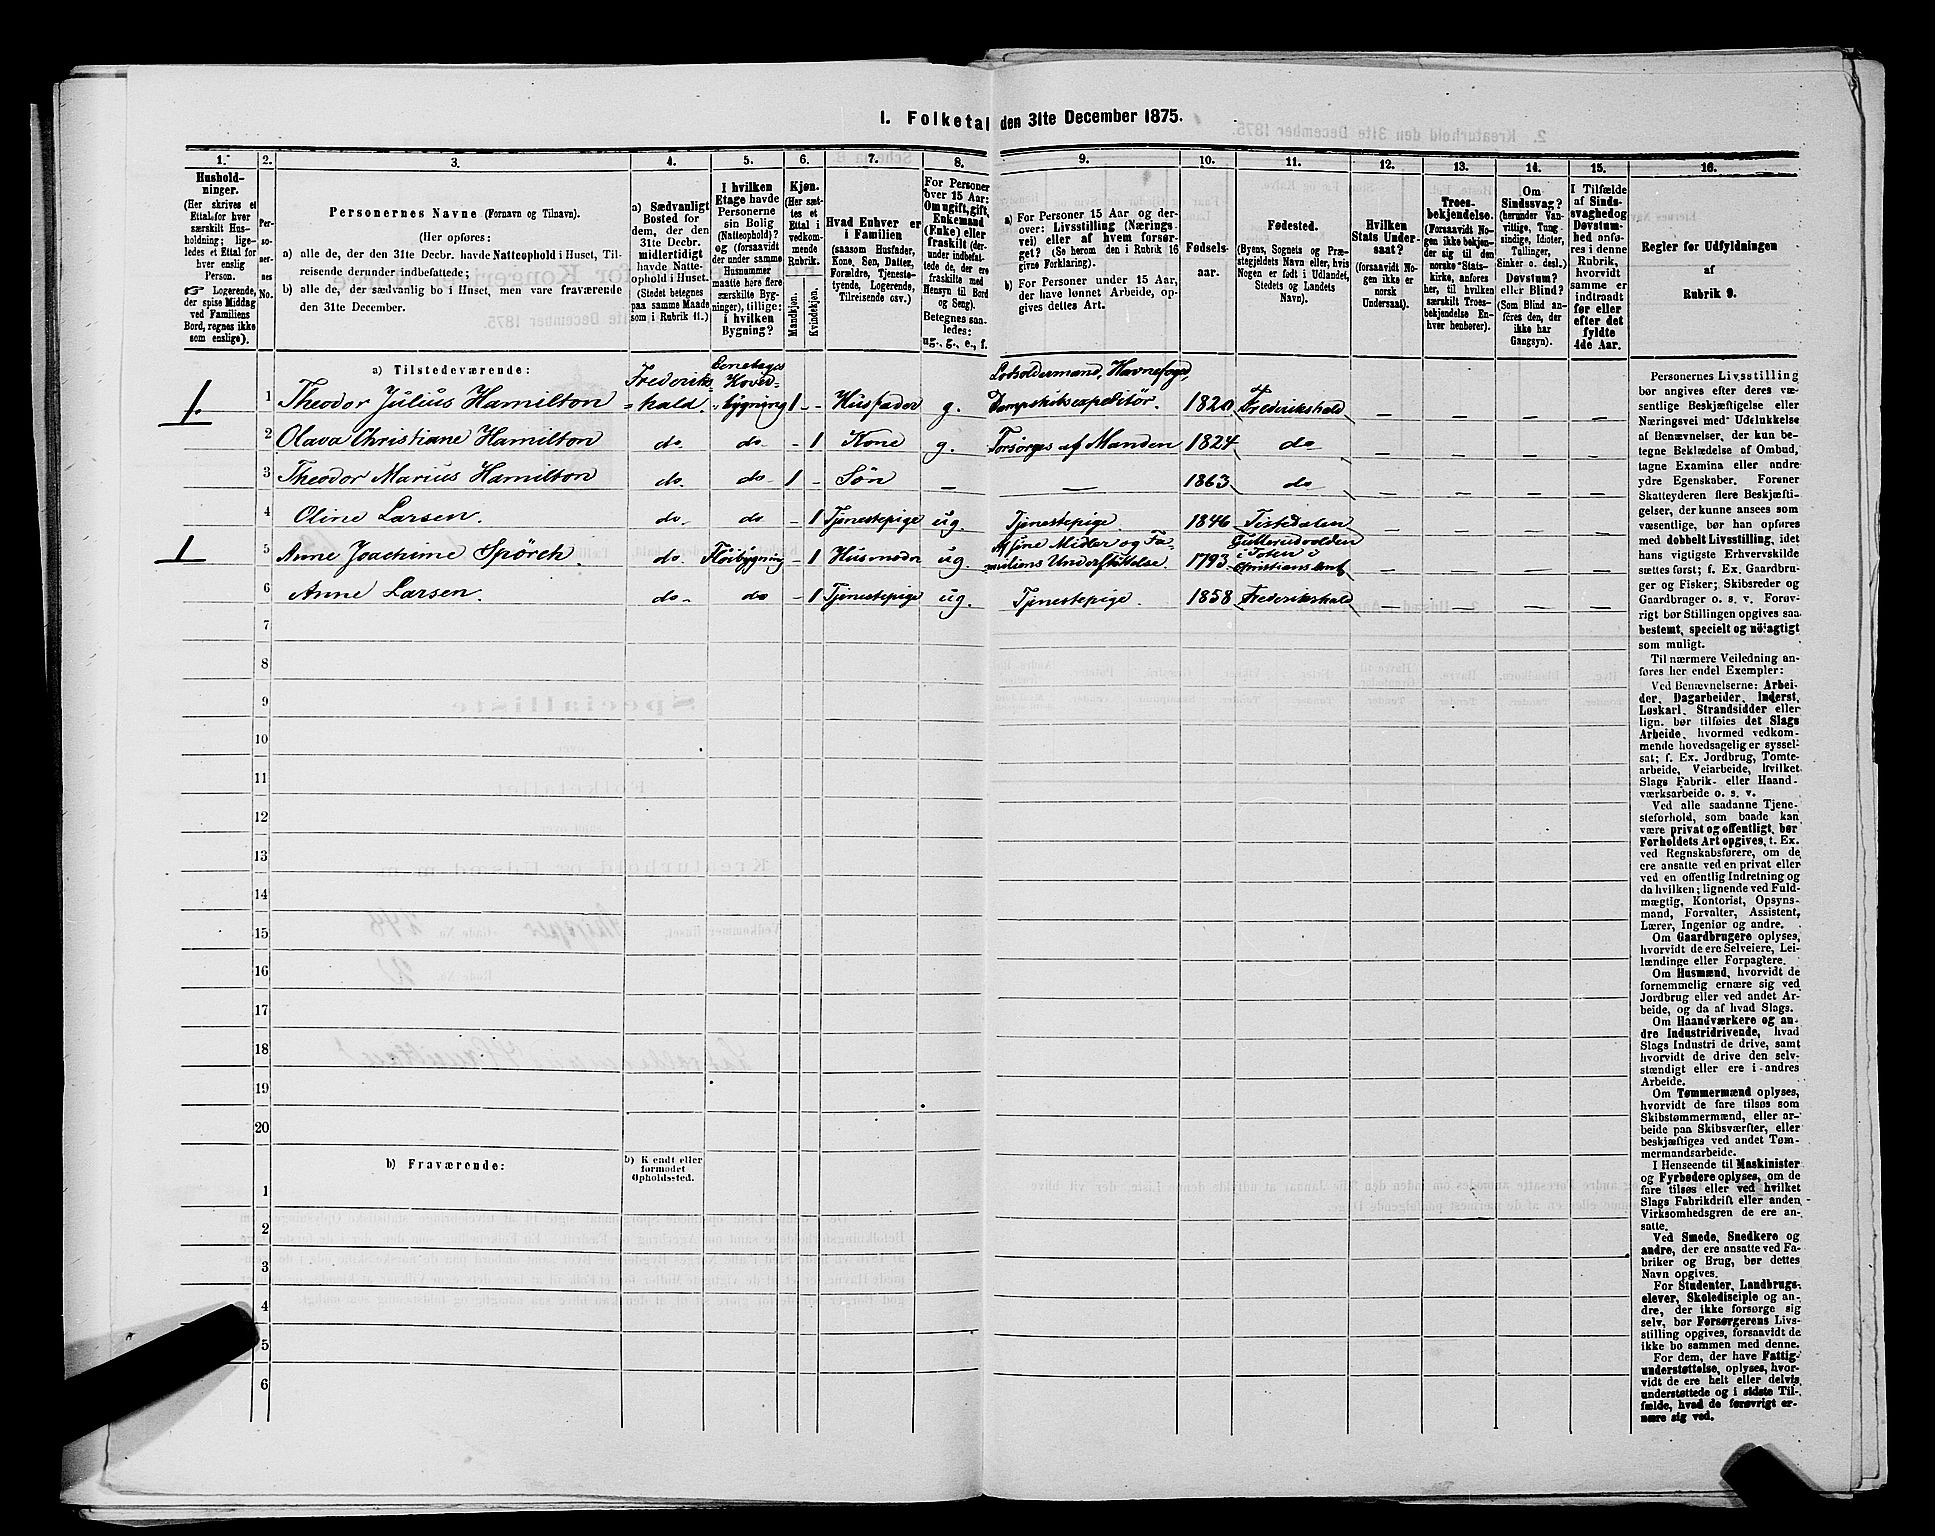 1. Folketal den 31te December 1875.
1. 2. 3. 4. 5. 6. 7. 8. 9. 10. 11. 12. 13. 14. 15. 16.
Hushold-
ninger.
(Her skrives et
Ettal for hver
særskilt Hus-
holdning; lige-
ledes et Ettal for
hver enslig
Person.
☞ Logerende,
der spise Middag
ved Familiens
Bord, regnes ikke
som enslige).
Per-
so-
ner-
nes
No.
Personernes Navne (Fornavn og Tilnavn).
(Her opføres:
a) alle de, der den 31te Decbr. havde Natteophold i Huset, Til-
reisende derunder indbefattede;
b) alle de, der sædvanlig bo i Huset, men vare fraværende
den 31te December.
a) Sædvanligt
Bosted for
dem, der den
31te Decbr.
midlertidigt
havde Natte-
ophold i Huset.
(Stedet betegnes
paa samme Maade
som i Rubrik 11.)
I hvilken
Etage havde
Personerne
sin Bolig
(Natteophold)?
og (forsaavidt
der under samme
Husnummer
maatte høre flere
særskilte Byg-
ninger), tillige:
i hvilken
Bygning?
Kjøn.
(Her sæt-
tes et
Ettal i
vedkom-
mende
Rubrik.
Mandkjøn.
Kvindekjøn.
Hvad Enhver er
i Familien
(saasom Husfader,
Kone, Søn, Datter,
Forældre, Tjeneste-
tyende, Logerende,
Tilreisende osv.)
For Personer
over 15 Aar:
Om ugift, gift,
Enkemand
(Enke) eller
fraskilt (der-
under indbefat-
tede de, der ere
fraskilte med
Hensyn til Bord
og Seng).
Betegnes saa-
ledes:
ug., g., e., f.
a) For Personer 15 Aar og der-
over: Livsstilling (Nærings-
vei) eller af hvem forsør-
get? (Se herom den i Rubrik 16
givne Forklaring).
b) For Personer under 15 Aar,
der have lønnet Arbeide, op-
gives dettes Art.
Fødsels-
aar.
Fødested.
(Byens, Sognets og Præ-
stegjeldets Navn eller, hvis
Nogen er født i Udlandet,
Stedets og Landets
Navn).
Hvilken
Stats Under-
saat?
(forsaavidt No-
gen ikke er
norsk
Undersaat).
Troes-
bekjendelse.
(Forsaavidt No-
gen ikke bekjen-
der sig til den
norske Stats-
kirke, anføres
her, til hvilken
særskilt Troes-
bekjendelse En-
hver henhører).
Om
Sindssvag?
(herunder Van-
vittige, Tung-
sindige, Idioter,
Tullinger,
Sinker o. desl.)
Døvstum?
eller Blind?
(Som Blind an-
føres den, der
ikke har
Gangsyn).
I Tilfælde
af Sinds-
svaghed og
Døvstum-
hed anfø-
res i denne
Rubrik,
hvorvidt
samme er
indtraadt
før eller
efter det
fyldte
4de Aar.
Regler før Udfyldningen
af
Rubrik 9.
a) Tilstedeværende:
1. 1 Theodor Julius Hamilton Frederiks- hald. Eenetages Hoved- bygning 1 - Husfader g. Lodsoldermand, Havnefoged, Dampskibsexpeditör. 1820 Frederikshald — — — —
2 Olava Christiane Hamilton do do - 1 Kone g. Forsørges af Manden 1824 do — — — —
3 Theodor Marius Hamilton do. do 1 - Søn — — 1863 do — — — —
4 Oline Larsen. do- do - 1 Tjenestepige ug. Tjenestepige. 1846 Tistedalen — — — —
1 5 Anne Joachime Spörch do. Flöibygning - 1 Husmoder ug. Af sine Midler og Fa- miliens Understöttelse. 1793 i Toten i Christians Amt — — — —
6 Anne Larsen. do- do - 1 Tjenestepige ug. Tjenestepige. 1858 Frederikshald — — — —
7
8
9
10
11
12
13
14
15
16
17
18
19
20
b) Fraværende: b) Kjendt eller
formodet
Opholdssted.
1
2
3
4
5
6
Personernes Livsstilling
bør angives efter deres væ-
sentlige Beskjæftigelse eller
Næringsvei med Udelukkelse
af Benævnelser, der kun be-
tegne Beklædelse af Ombud,
tagne Examina eller andre
ydre Egenskaber. Forener
Skatteyderen flere Beskjæfti-
gelser, der kunne ansees som
væsentlige, bør han opføres
med dobbelt Livsstilling, idet
hans vigtigste Erhvervskilde
sættes først; f. Ex. Gaardbru-
ger og Fisker; Skibsreder og
Gaardbruger o. s. v. Forøv-
rigt bør Stillingen opgives saa
bestemt, specielt og nöiagtigt
som muligt.
Til nærmere Veiledning an-
føres her endel Exempler:
Ved Benævnelserne: Arbei-
der, Dagarbeider, Inderst,
Løskarl, Strandsidder eller
lign. bør tilføies det Slags
Arbeide, hvormed vedkom-
mende hovedsagelig er syssel-
sat; f. Ex. Jordbrug, Tomte-
arbeide, Veiarbeide, hvilket
Slags Fabrik- eller Haand-
værksarbeide o. s. v.
Ved alle saadanne Tjene-
steforhold, som baade kan
være privat og offentligt, bør
Forholdets Art opgives, t. Ex.
ved Regnskabsførere, om de
ere ansatte ved en privat eller
ved en offentlig Indretning og
da hvilken; lignende ved Fuld-
mægtig, Kontorist, Opsyns-
mand, Forvalter, Assistent,
Lærer, Ingeniør og andre.
Om Gaardbrugere oplyses,
hvorvidt de ere Selveiere, Lei-
lændinge eller Forpagtere.
Om Husmænd, hvorvidt de
fornemmelig ernære sig ved
Jordbrug eller ved andet Ar-
beide, og da af hvad Slags.
Om Haandværkere og an-
dre Industridrivende, hvad
Slags Industri de drive, samt
hvorvidt de drive den selv-
stændigt eller ere i andres
Arbeide.
Om Tømmermænd oplyses,
hvorvidt de fare tilsøs som
Skibstømmermænd, eller ar-
beide paa Skibsværfter, eller
beskjæftiges ved andet Tøm-
mermandsarbeide.
I Henseende til Maskinister
og Fyrbødere oplyses, om de
fare tilsøs eller ved hvilket
Slags Fabrikdrift eller anden
Virksomhedsgren de ere an-
satte.
Ved Smede, Snedkere og
andre, der ere ansatte ved Fa-
briker og Brug, bør dettes
Navn opgives.
For Studenter, Landbrugs-
elever, Skoledisciple og an-
dre, der ikke forsørge sig
selv, bør Forsørgerens Livs-
stilling opgives, forsaavidt de
ikke bo sammen med denne.
For dem, der have Fattig-
understøttelse, oplyses, hvor-
vidt de ere helt eller delvis
understøttede og i sidste Til-
fælde, hvad de forøvrigt er-
nære sig ved.